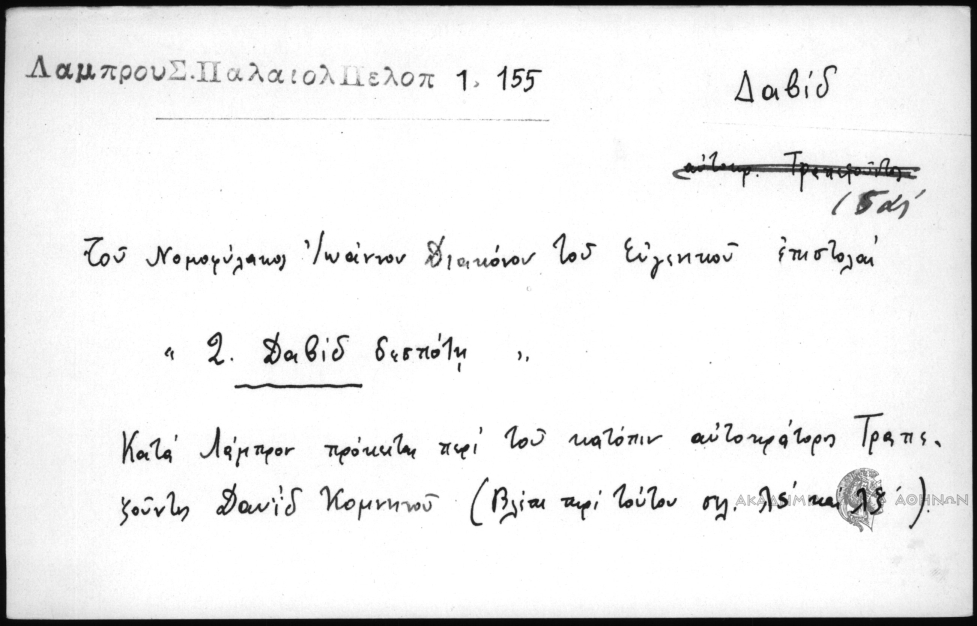 ΛαμπρουΣ.ΠαλαιολΠελοπ 1, 155
Δαβίδ
αὐτοκρ. Τραπεζοῦντος
Τοῦ Νομοφύλακος Ἰωάννου Διακόνου τοῦ Εὐγενικοῦ ἐπιστολαί
" 2. Δαβίδ δεσπότῃ "
Κατά Λάμπρον πρόκειται περί τοῦ κατόπιν αὐτοκράτορος Τραπε-
ζοῦντος Δαυίδ Κομνηνοῦ (Βλέπε περί τούτου σελ. λε΄ και λξ΄).
ΑΚΑΔΗΜΙΑ ΑΘΗΝΩΝ